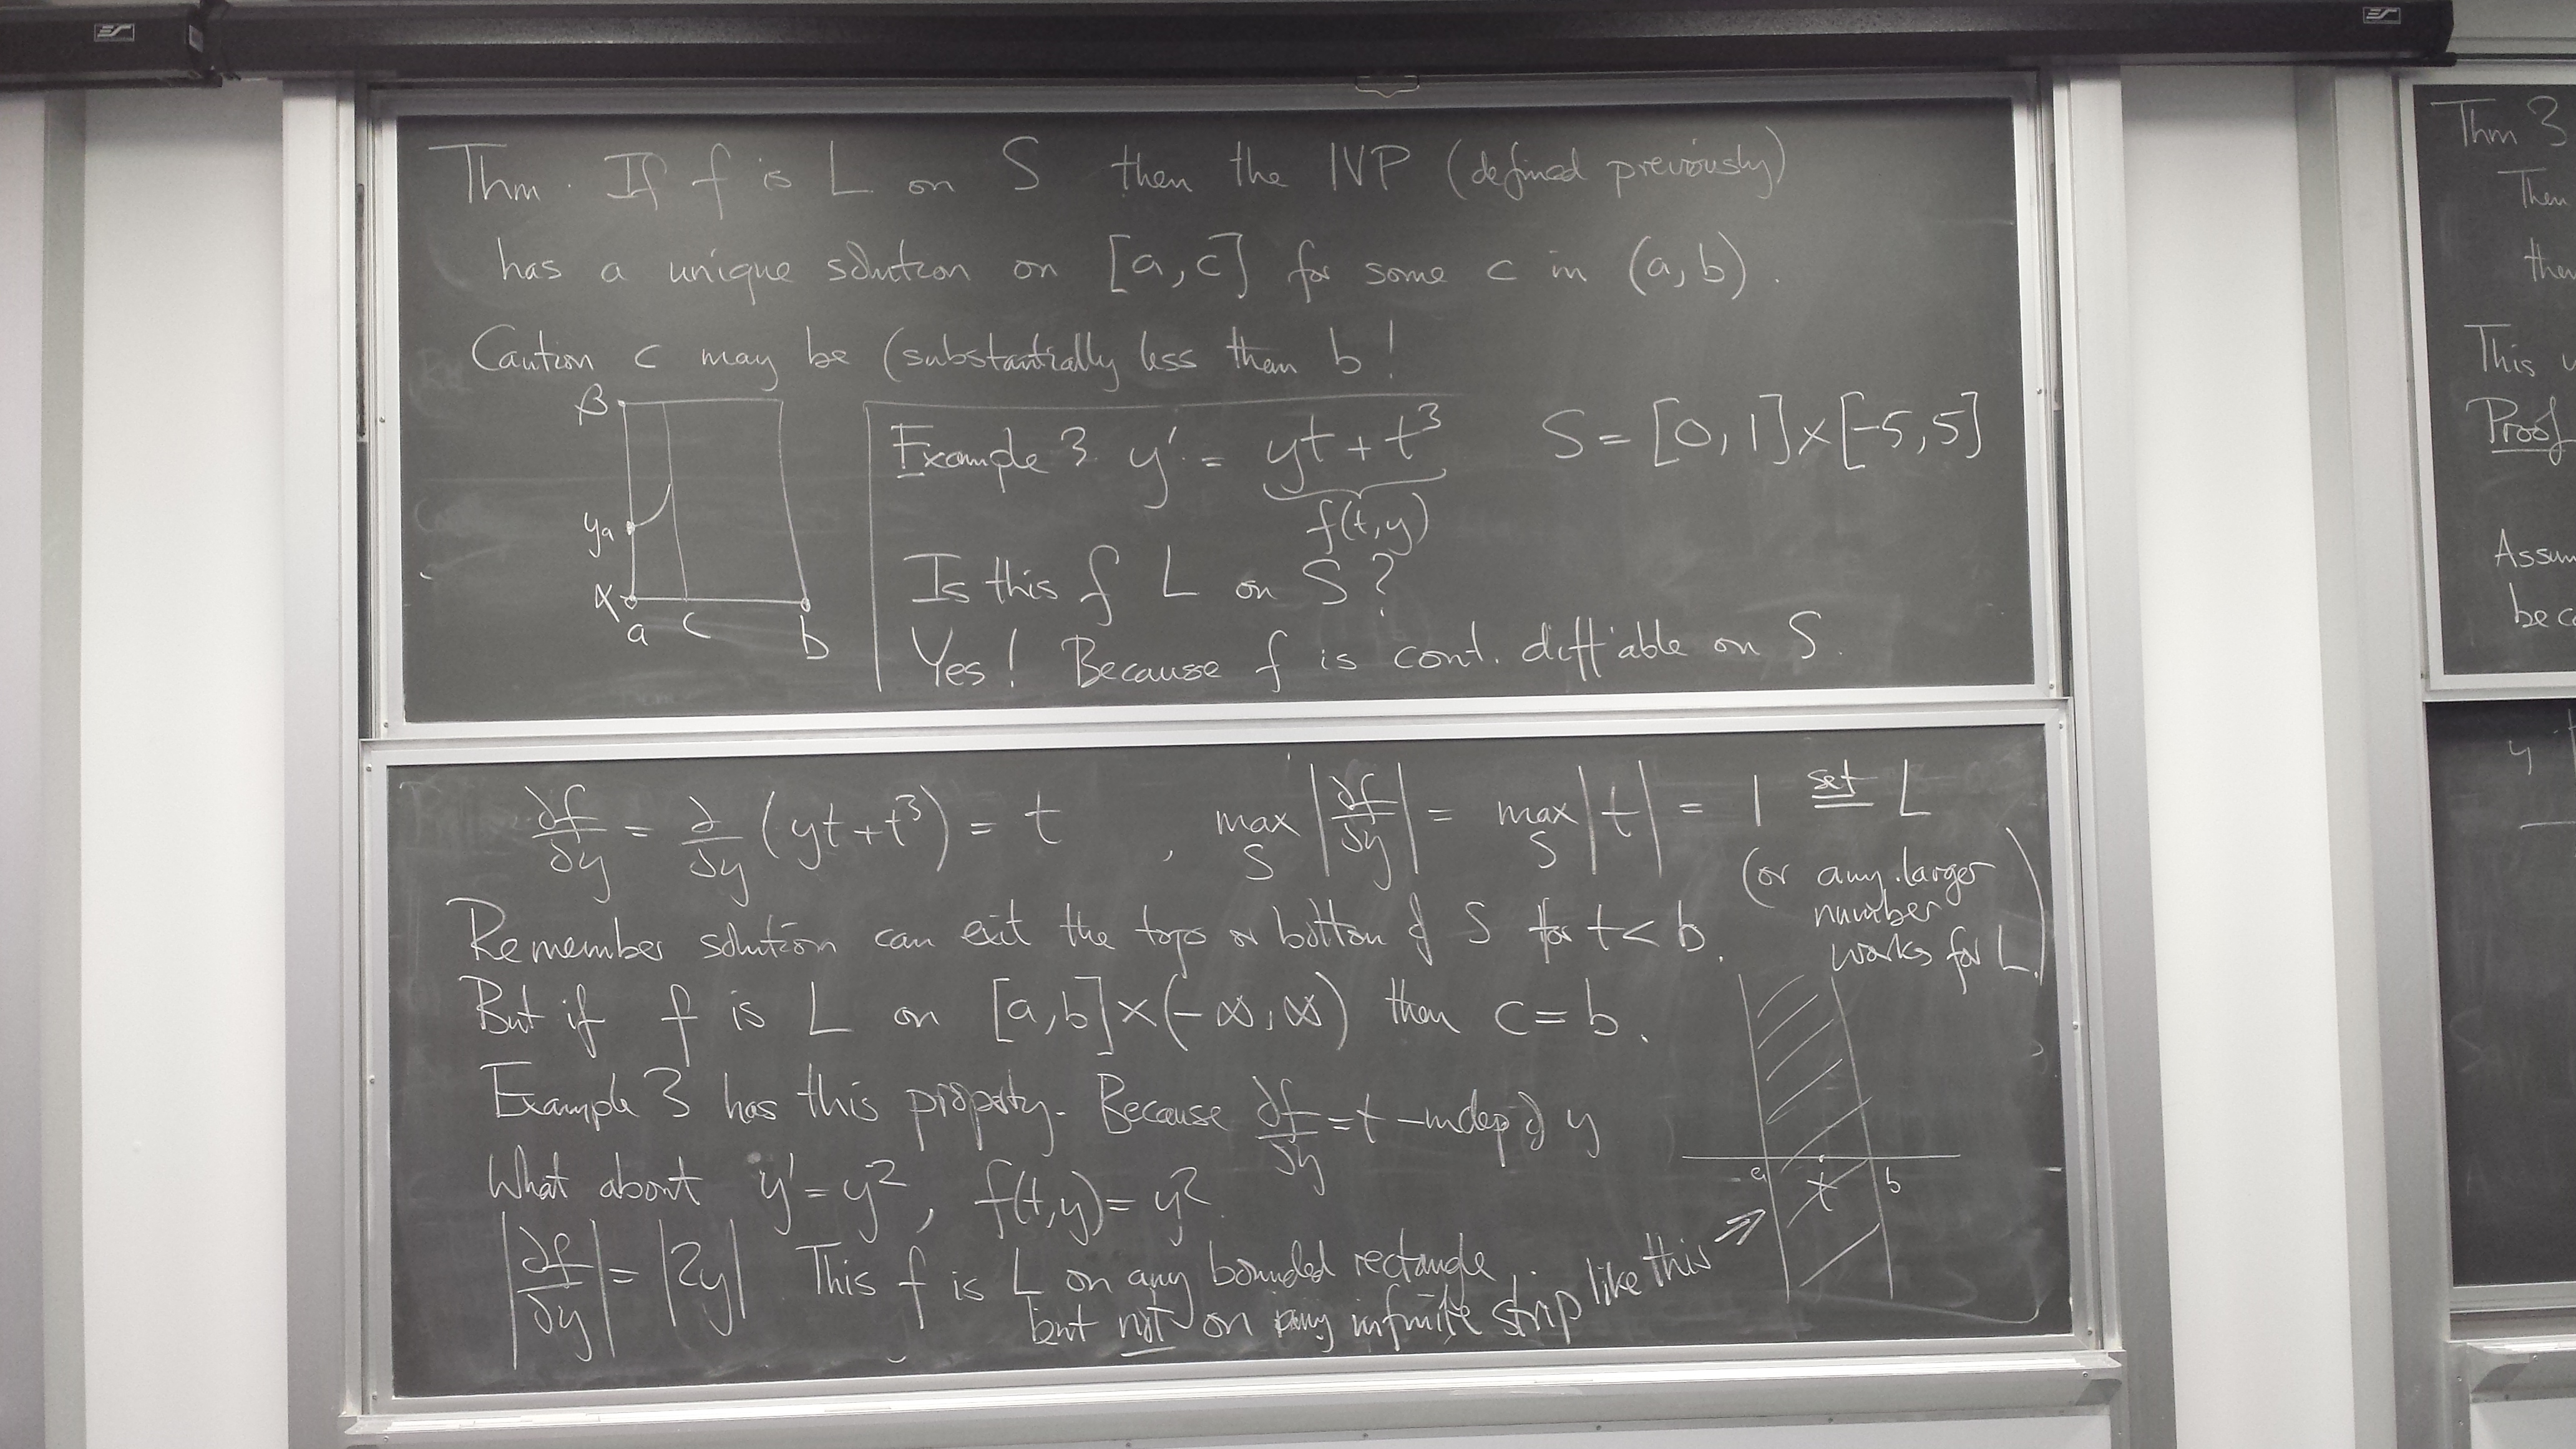 Thm. If f is L on S then the IVP (defined previously)
has a unique solution on [a,c] for some c in (a,b).
Caution c may be (substantially less than b!
β
ya
α
a c b
Example 3. y' = yt + t³ S = [0,1]×[-5,5]
f(t,y)
Is this f L on S?
Yes! Because f is cont. diff'able on S.
∂f/∂y = ∂/∂y (yt+t³) = t , max_S |∂f/∂y| = max_S |t| = 1 set= L
(or any larger
number
works for L.)
Remember solution can exit the top or bottom of S for t<b.
But if f is L on [a,b]×(-∞,∞) then c=b.
Example 3 has this property. Because ∂f/∂y = t - indep of y
What about y'=y², f(t,y)=y².
|∂f/∂y| = |2y| This f is L on any bounded rectangle,
but not on any infinite strip like this
a t b
Thm 3
Then
then
This
Proof
Assum
beca
y